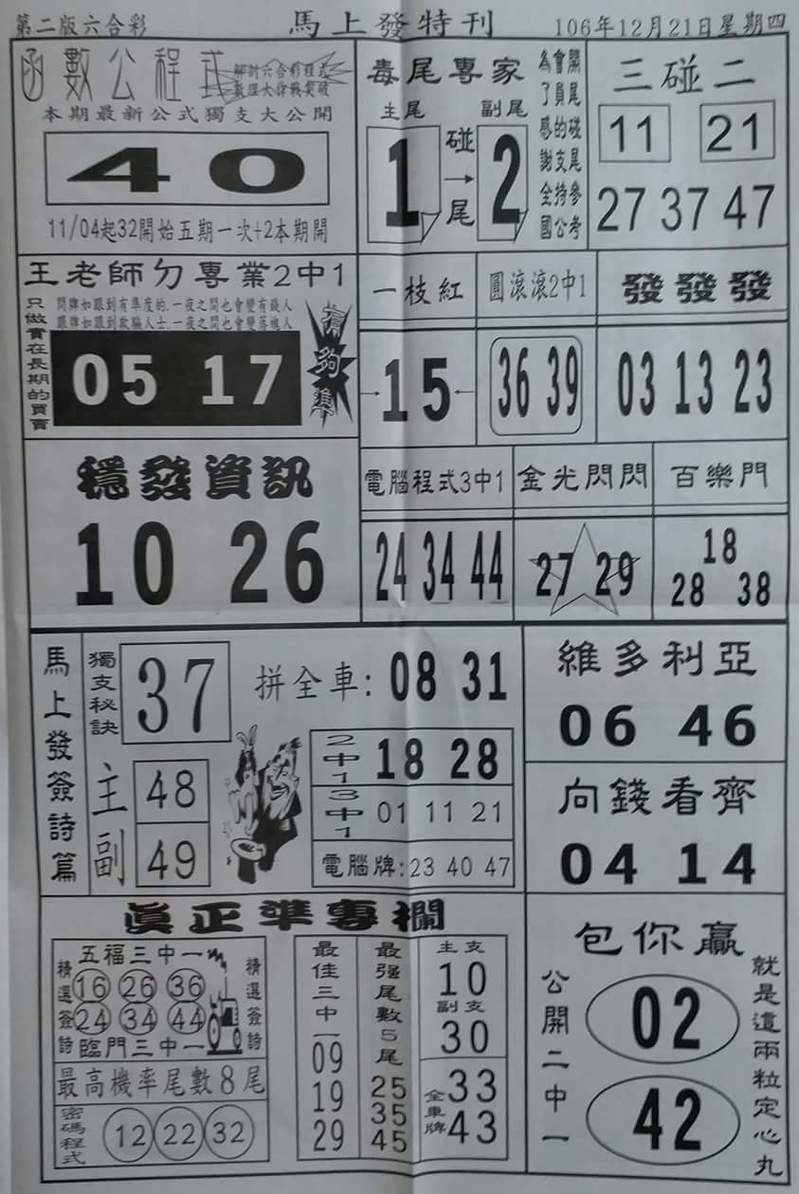 第二版六合彩
馬上發特刊
106年12月21日星期四
函數公程式
解討六合彩程式
數理大律興突破
本期最新公式獨支大公開
40
11/04起32開始五期一次+2本期開
毒尾專家
主尾
副尾
1
碰→尾
2
為會開
了員尾
感的碰
謝支尾
全持參
國公考
三碰二
11 21
27 37 47
王老師ㄉ專業2中1
只做實在長期的買賣
問牌如跟到有準度的.一夜之間也會變有錢人
跟牌如跟到欺騙人士.一夜之間也會變落魄人
05 17
有夠準
一枝紅
15
圓滾滾2中1
36 39
發發發
03 13 23
穩發資訊
10 26
電腦程式3中1
24 34 44
金光閃閃
27 29
百樂門
18
28 38
馬上發簽詩篇
獨支秘訣
37
拼全車:08 31
主
48
副
49
2中1
18 28
3中1
01 11 21
電腦牌:23 40 47
維多利亞
06 46
向錢看齊
04 14
真正準專欄
五福三中一
精選簽詩
16 26 36
24 34 44
精選簽詩
臨門三中一
最高機率尾數8尾
密碼程式
12 22 32
最佳三中一
09
19
29
最強尾數5尾
25
35
45
主支
10
副支
30
全車牌
33
43
包你贏
公開二中一
02
42
就是這兩粒定心丸